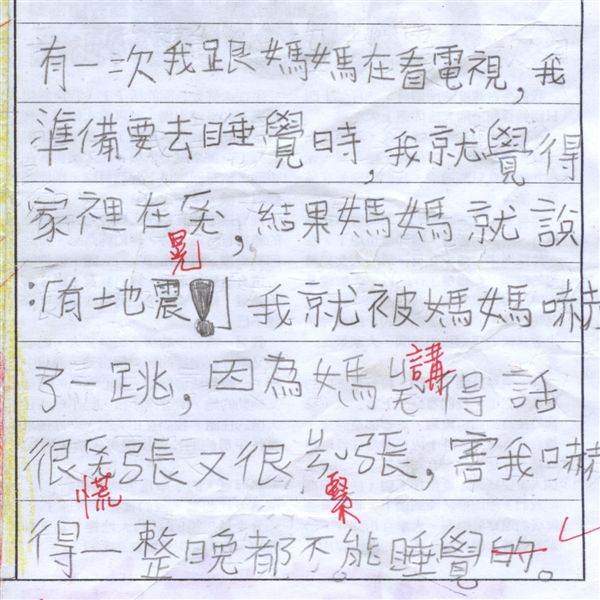 有一次我跟媽媽在看電視,我
準備要去睡覺時,我就覺得
家裡在,結果媽媽就說
晃
:「有地震!」我就被媽媽嚇
講
了一跳,因為媽得話
很張又很張,害我嚇
慌 緊
得一整晚都不能睡覺的。